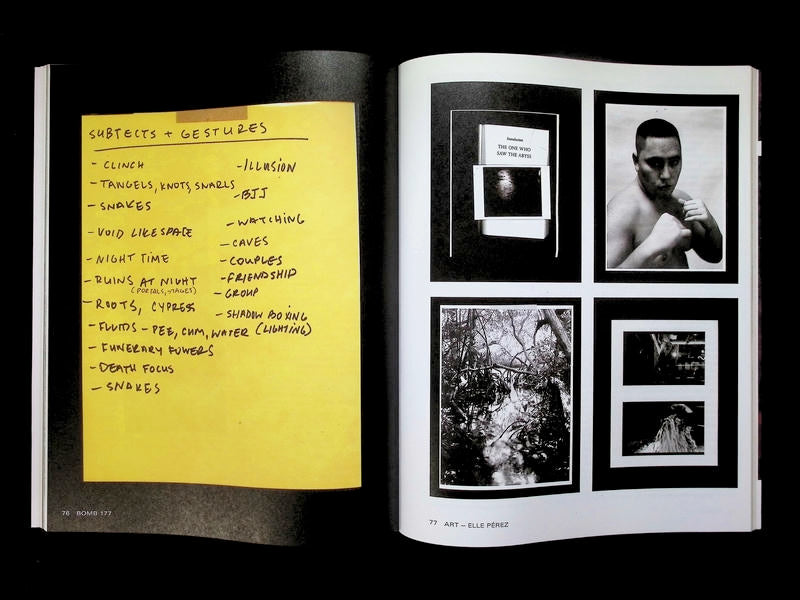 SUBTECTS + GESTURES
- CLINCH
- TANGELS, KNOTS, SNARLS
- SNAKES
- VOID LIKE SPACE
- NIGHT TIME
- RUINS AT NIGHT
(PORTALS, STAGES)
- ROOTS, CYPRESS
- FLUIDS - PEE, CUM, WATER
- FUNERARY FOWERS
- DEATH FOCUS
- SNAKES
- ILLUSION
- BJJ
- WATCHING
- CAVES
- COUPLES
- FRIENDSHIP
- GROUP
- SHADOW BOXING
(LIGHTING)
76 BOMB 177
Introduction
THE ONE WHO
SAW THE ABYSS
77 ART — ELLE PÉREZ